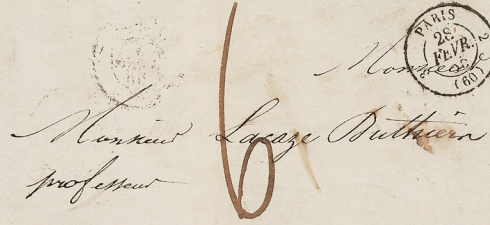 PARIS 2
28
FEVR.
(60)
Monsieur
6
Monsieur Lacaze Duthiers
professeur